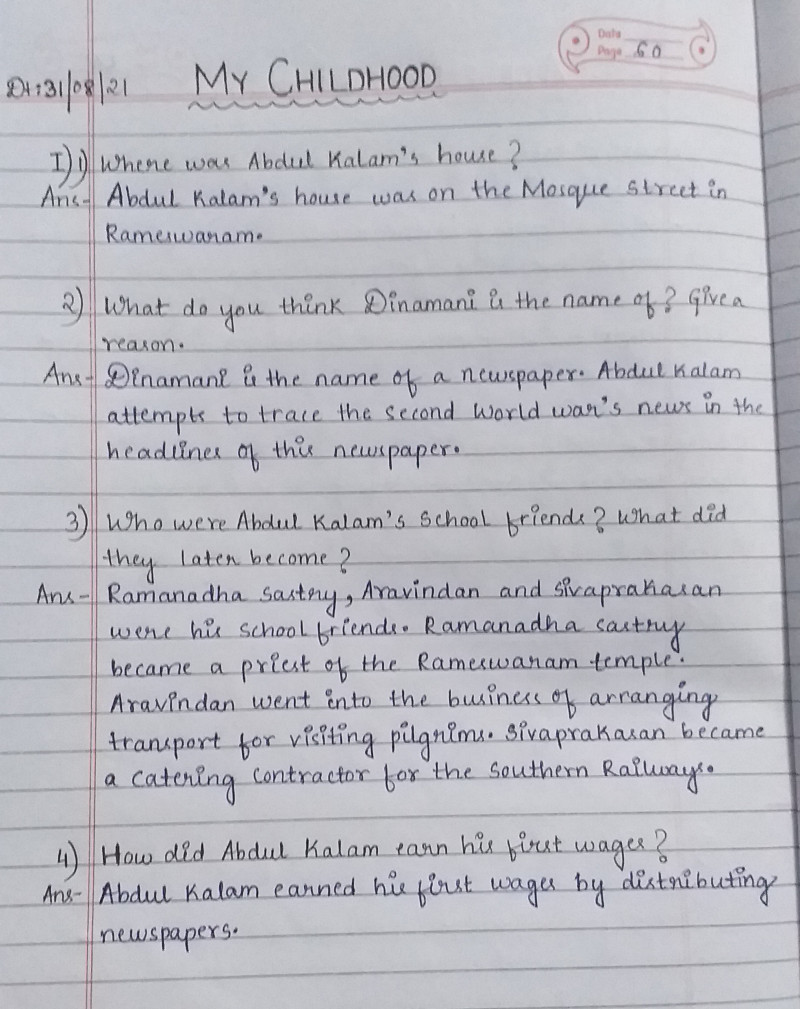 Date
Page 60
Dt:31/08/21 MY CHILDHOOD
I) 1) Where was Abdul Kalam's house?
Ans- Abdul Kalam's house was on the Mosque Street in
Rameswaram.
2) What do you think Dinamani is the name of? Give a
reason.
Ans- Dinamani is the name of a newspaper. Abdul Kalam
attempts to trace the second World war's news in the
headlines of this newspaper.
3) Who were Abdul Kalam's School friends? What did
they later become?
Ans- Ramanadha Sastry, Aravindan and Sivaprakasan
were his school friends. Ramanadha Sastry
became a priest of the Rameswaram temple.
Aravindan went into the business of arranging
transport for visiting pilgrims. Sivaprakasan became
a catering contractor for the Southern Railways.
4) How did Abdul Kalam earn his first wages?
Ans- Abdul Kalam earned his first wages by distributing
newspapers.